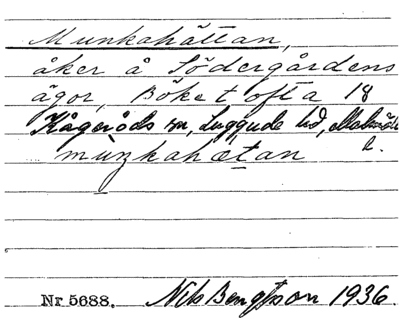 Munkahättan,
åker å Södergårdens
ägor, Böketofta 18
Kågeröds sn, Luggude hd, Malmöh.
l.
munkahætan
Nr 5688. Nils Bengtsson 1936.